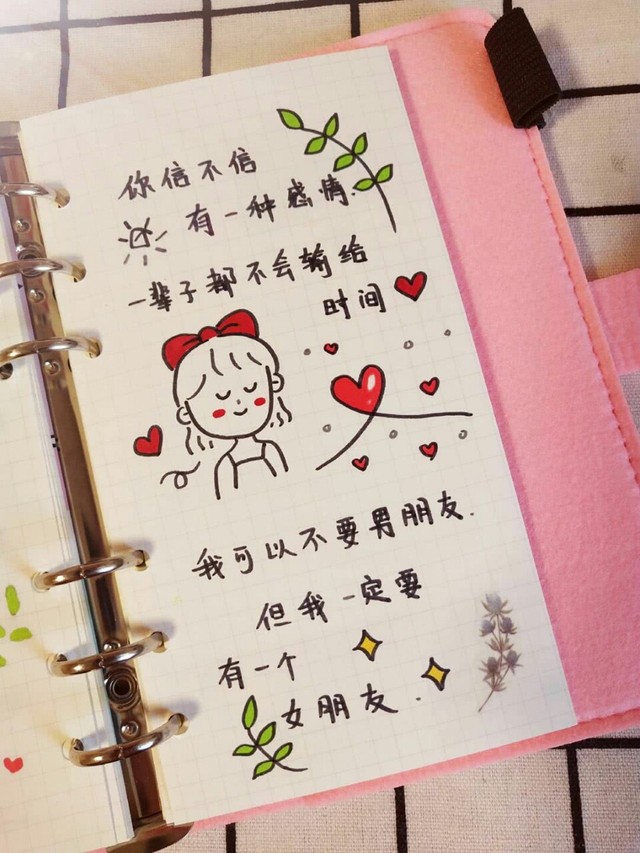 你信不信
有一种感情.
一辈子都不会输给
时间
我可以不要男朋友.
但我一定要
有一个
女朋友.